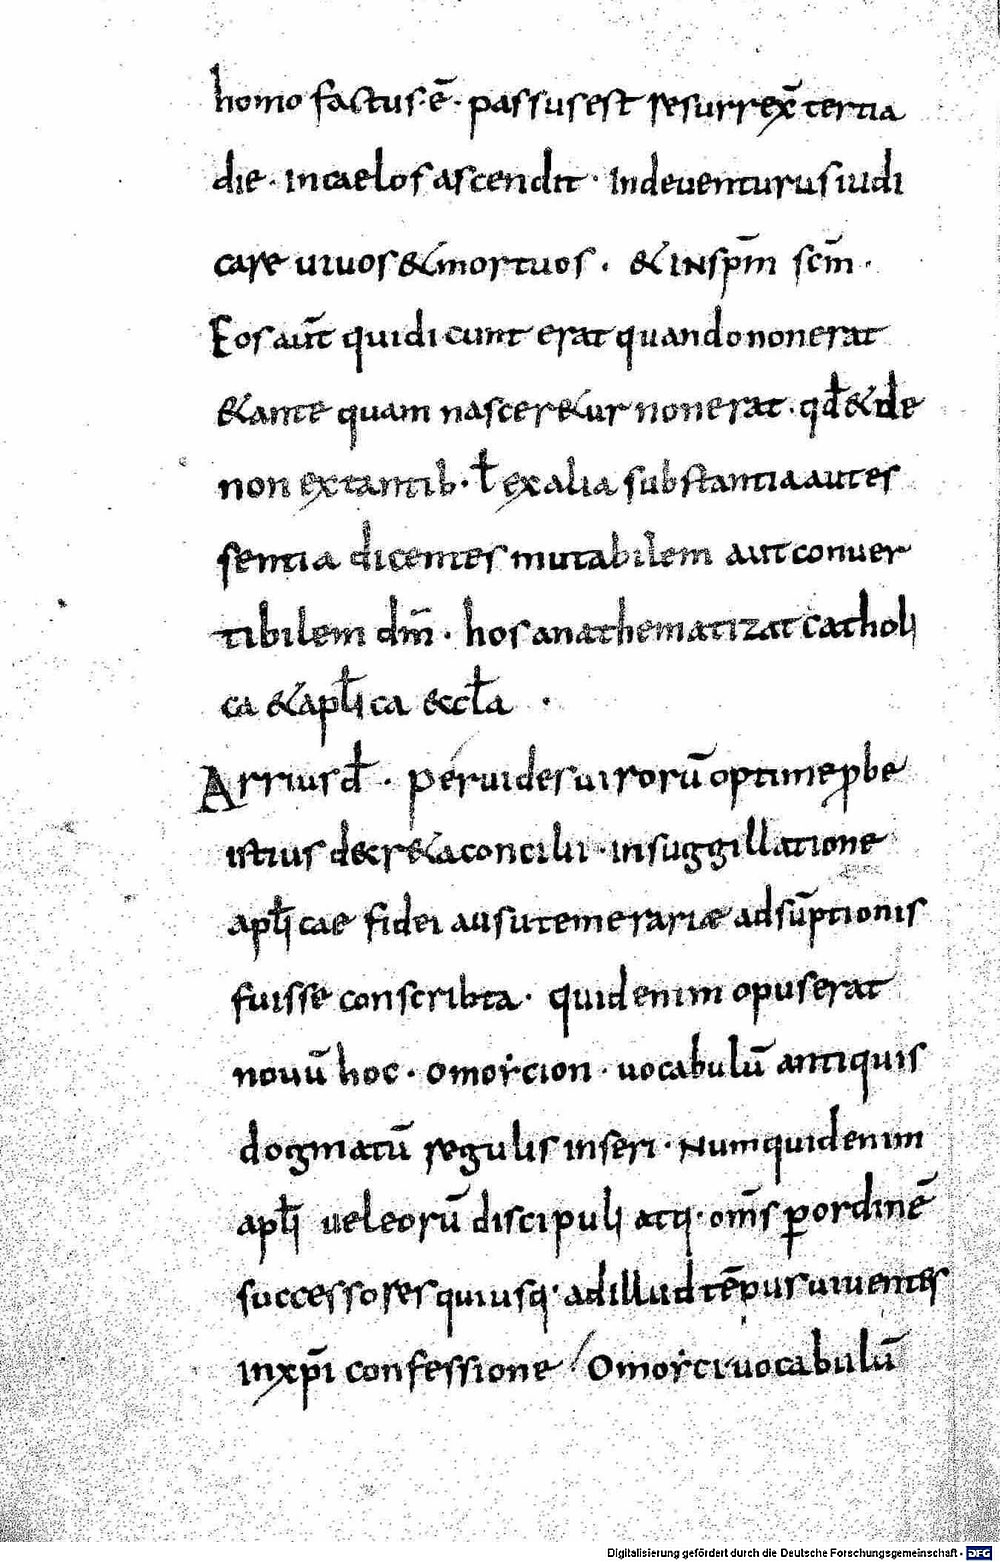 homo factus ē · passus est resurrex̄ tertia
die · in caelos ascendit · Inde uenturus iudi
care uiuos & mortuos · & IN sp̄m sc̄m ·
Eos aūt qui dicunt erat quando non erat
& ante quam nascer&ur non erat · qđ & de
non extantib · ł ex alia substantia aut es
sentia dicentes mutabilem aut conuer
tibilem dm̄ · hos anathematizat catholi
ca & apłica &ccła ·
Arrius đ · Peruides uirorū optime p̱be
istius decr&a concilii · in suggillatione
apłicae fidei ausu temerariæ adsūptionis
fuisse conscribta · quid enim opus erat
nouū hoc · omoṙcion · uocabulū antiquis
dogmatū regulis inseri · Numquid enim
apłi uel eorū discipuli atq · om̄s ꝑ ordinē
successores qui usq · ad illud tēpus uiuentes
in xp̄i confessione / Omoṙci uocabulū
Digitalisierung gefördert durch die Deutsche Forschungsgemeinschaft · DFG